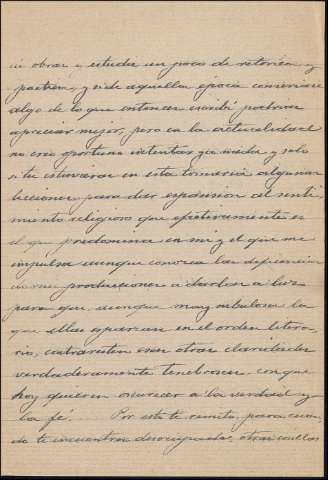 mi obra: y estudié un poco de retórica y
poética, y si de aquella época conservase
algo de lo que entonces escribí podría
apreciar mejor, pero en la actualidad
no creo oportuno intentar ya nada y solo
si tu estuvieras en esta tomaría algunas
lecciones para dar expansión al senti
miento religioso que efectivamente es
el que predomina en mi y el que me
impulsa aunque conozca las deficiencias
en mis producciones a darlas a luz
para que, aunque muy nebulosa la
que ellas esparcen en el orden litera-
rio, contrarresten esas otras claridades
verdaderamente tenebrosas con que
hoy quieren oscurecer a la verdad y
la fé. Por esto te remito, para cuan
do te encuentres desocupado, otras